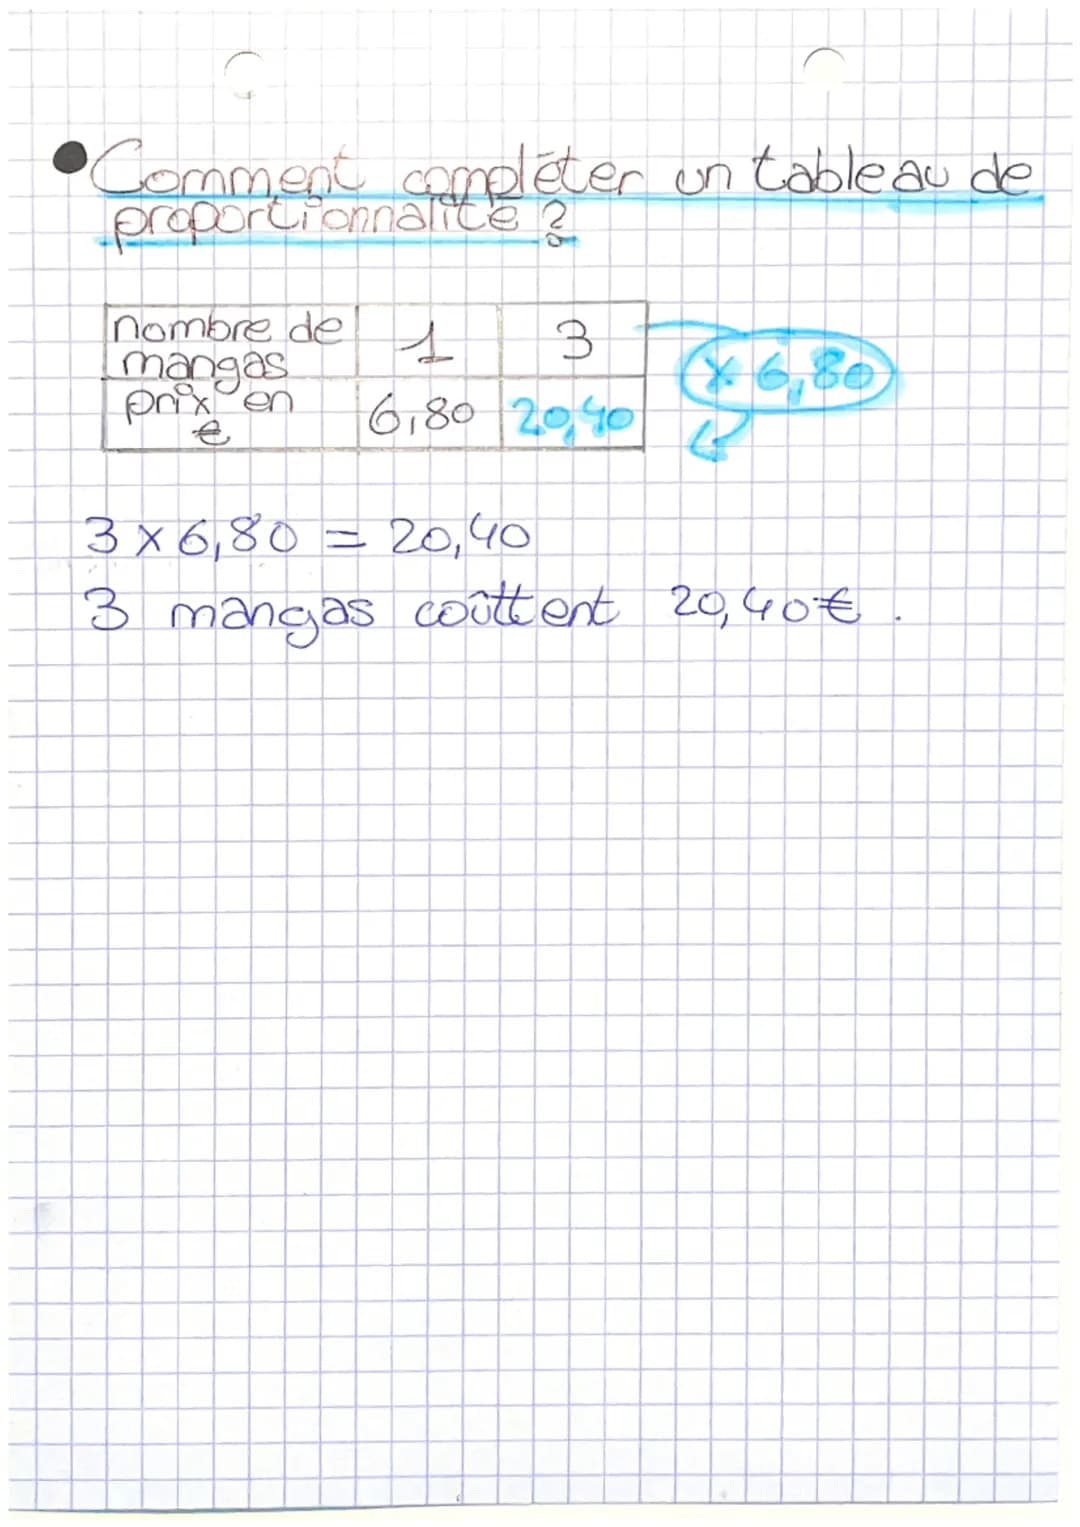 Comment compléter un tableau de
proportionnalité ?
nombre de mangas 1 3
prix en € 6,80 20,40
× 6,80
3 × 6,80 = 20,40
3 mangas coûttent 20,40 € .